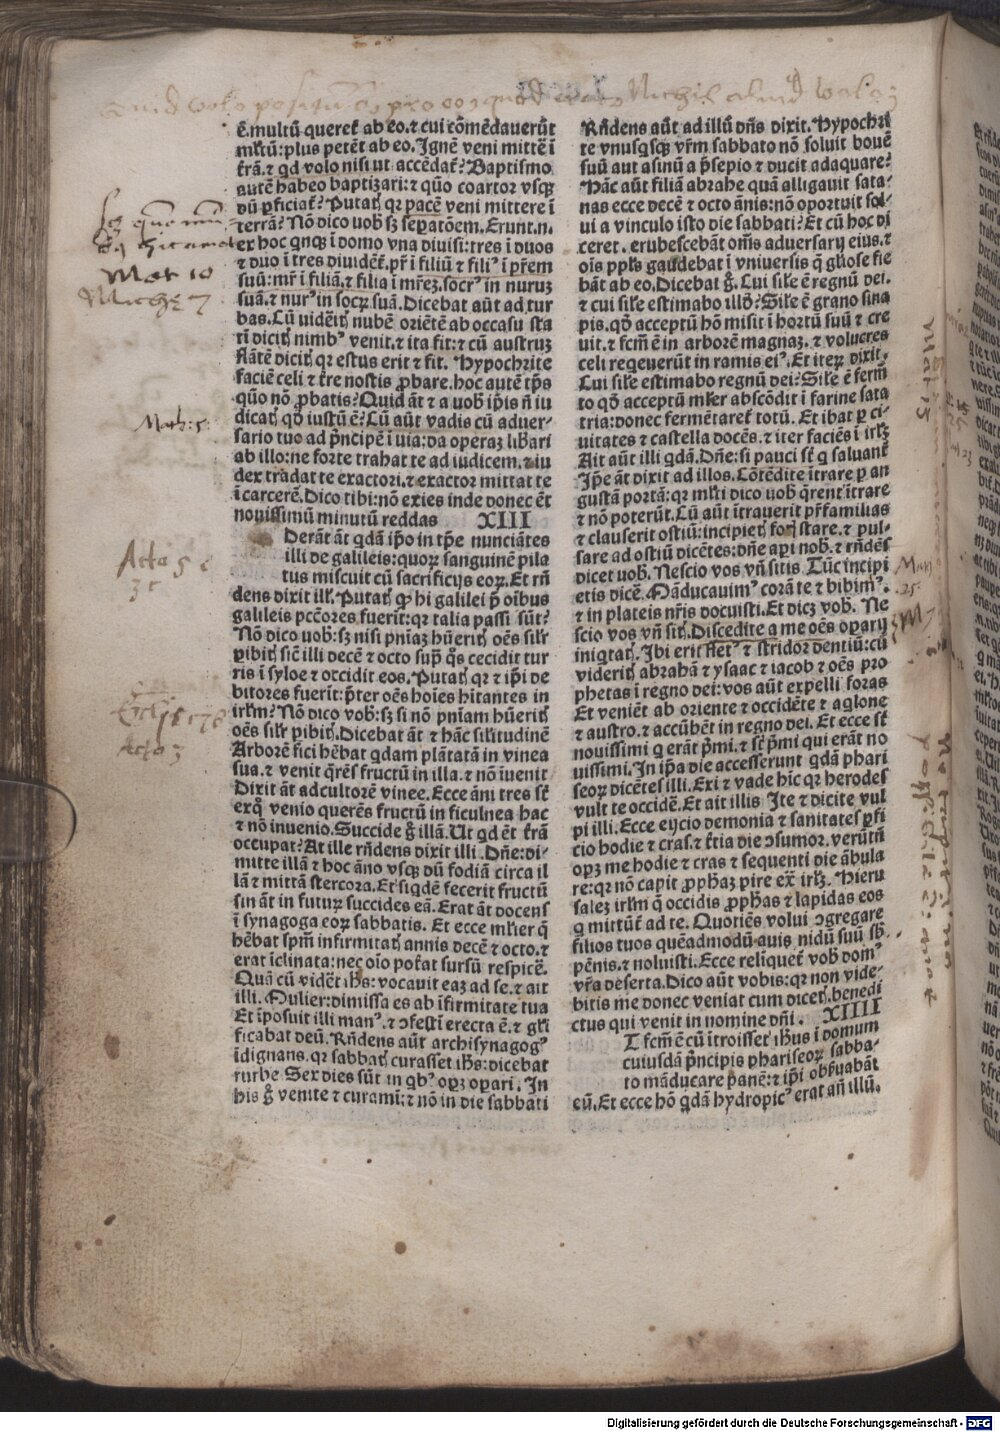 ē. multū querēt ab eo. ⁊ cui cōmēdauerūt
mĺtū: plus petēt ab eo. Ignē veni mittē ī
t̄rā. ⁊ qd volo nisi ut accēdat̄? Baptismo
autē habeo baptizari: ⁊ quō coartor vsqꝫ
dū ꝑficiat̄? Putatꝭ qꝛ pacē veni mittere ī
terrā? Nō dico uob̄ sꝫ sepatōem. Erunt. n.
ex hoc qnqꝫ ī domo vna diuisi: tres ī duos
⁊ duo ī tres diuidēt̄. pr̄ ī filiū ⁊ fili⁹ ī pr̄em
suū: mr̄ ī filiā. ⁊ filia ī mr̄eꝫ. socr⁹ in nuruꝫ
suā. ⁊ nur⁹ in socꝝ suā. Dicebat aūt ad tur
bas. Cū uidēitꝭ nubē oriētē ab occasu sta
tī dicitꝭ nimb⁹ venit. ⁊ ita fit: ⁊ cū austruꝫ
flātē dicitꝭ qꝛ estus erit ⁊ fit. Hypochrite
faciē celi ⁊ t̄re nostis ꝓbare. hoc autē tp̄s
quō nō ꝓbatis? Quid āt ⁊ a uob ip̄is ñ iu
dicatꝭ qd̄ iustū ē? Cū aūt vadis cū aduer-
sario tuo ad pͥncipē ī uia: da operaꝫ lib̄ari
ab illo: ne forte trahat te ad iudicem. ⁊ iu
dex tradat te exactori. ⁊ exactor mittat te
ī carcerē. Dico tibi: nō exies inde donec ēt
nouissimū minutū reddas XIII
Derāt āt qdā ip̄o in tp̄e nunciātes
illi de galileis: quoꝝ sanguinē pila
tus miscuit cū sacrificijs eoꝝ. Et rñ
dens dixit ill'. Putatꝭ qꝙ hi galilei p̄ oībus
galileis pctōres fuerīt: qꝛ talia passi sūt?
Nō dico uob̄: sꝫ nisi pnīaꝫ hūeritꝭ oēs sil'r
ꝑibitꝭ sic̄ illi decē ⁊ octo supͣ qͦs cecidit tur
ris ī syloe ⁊ occidit eos. Putatꝭ qꝛ ⁊ ip̄i de
bitores fuerīt: p̄ter oēs hoīes hītantes in
irl'm? Nō dico vob̄: sꝫ si nō pnīam hūeritꝭ
oēs sil'r ꝑibitꝭ. Dicebat āt ⁊ hāc sil'itudinē
Arborē fici hēbat qdam plātatā in vinea
sua. ⁊ venit qͣrēs fructū in illa. ⁊ nō īuenit
Dixit āt ad cultorē vinee. Ecce āni tres sūt
ex q̄ venio querēs fructū in ficulnea hac
⁊ nō inuenio. Succide gͦ illā. Ut qd ēt t̄rā
occupat? At ille rñdens dixit illi. Dñe: di-
mitte illā ⁊ hoc āno vsqꝫ dū fodiā circa il
lā ⁊ mittā stercora. Et siqdē fecerit fructū
sin āt in futuꝝ succides eā. Erat āt docens
ī synagoga eoꝝ sabbatis. Et ecce ml'ier q̄
hēbat spm̄ infirmitatꝭ annis decē ⁊ octo. ⁊
erat īclinata: nec oīo pot̄at sursū respicē.
Quā cū vidēt ih̄s: vocauit eaꝫ ad se. ⁊ ait
illi. Mulier: dimissa es ab īfirmitate tua
Et īposuit illi man⁹. ⁊ ɔfestī erecta ē. ⁊ gl'i
ficabat deū. Rñdens aūt archisynagog⁹
īdignans. qꝛ sabbatꝭ curasset ih̄s: dicebat
turbe Sex dies sūt in qb⁹ opꝫ oꝑari. In
his gͦ venite ⁊ curamī: ⁊ nō in die sabbati
Rñdens aūt ad illū dñs dixit. Hypochri
te vnusqsqꝫ vr̄m sabbato nō soluit bouē
suū aut asinū a p̄sepio ⁊ ducit adaquare?
Hāc aūt filiā abrahe quā alligauit sata-
nas ecce decē ⁊ octo ānis: nō oportuit sol-
ui a vinculo isto die sabbati? Et cū hoc di
ceret. erubescebāt oīs aduersarij eius. ⁊
oīs ppl's gaudebat ī vniuersis q̄ gl'iose fie
bāt ab eo. Dicebat gͦ. Cui sil'e ē regnū dei.
⁊ cui sil'e estimabo illd̄? Sil'e ē grano sina
pis. qd̄ acceptū hō misit ī hortū suū ⁊ cre
uit. ⁊ fcm̄ ē in arborē magnaꝫ. ⁊ volucres
celi reqeuerūt in ramis ei⁹. Et iteꝝ dixit.
Cui sil'e estimabo regnū dei? Sil'e ē ferm̄
to qd̄ acceptū ml'ier abscōdit ī farine sata
tria: donec fermētaret̄ totū. Et ibat ꝑ ci-
uitates ⁊ castella docēs. ⁊ iter faciēs ī irl'ꝫ
Ait aūt illi qdā. Dñe: si pauci sūt q saluant̄
Ip̄e āt dixit ad illos. Cōtēdite ītrare ꝑ an
gustā portā: qꝛ ml'ti dico uob̄ qͣrent ītrare
⁊ nō poterūt. Cū aūt ītrauerit pr̄familias
⁊ clauserit ostiū: incipietꝭ foꝝ stare. ⁊ pul-
sare ad ostiū dicētes: dñe aꝑi nob̄. ⁊ rñdēs
dicet uob̄. Nescio vos vñ sitis. Tūc īncipi
etis dicē. Māducauim⁹ corā te ⁊ bibim⁹.
⁊ in plateis nr̄is docuisti. Et dicꝫ vob̄. Ne
scio vos vñ sitꝭ. Discedite a me oēs oꝑarij
iniqtatꝭ. Ibi erit flet⁹ ⁊ stridor dentiū: cū
videritꝭ abrahā ⁊ ysaac ⁊ iacob ⁊ oēs pro
phetas ī regno dei: vos aūt expelli foras
Et veniēt ab oriente ⁊ occidēte ⁊ aqlone
⁊ austro. ⁊ accūbēt in regno dei. Et ecce sūt
nouissimi q erāt pͥmi. ⁊ sūt pͥmi qui erāt no
uissimi. In ip̄a die accesserunt qdā phari
seoꝝ dicētes illi. Exi ⁊ vade hīc qꝛ herodes
vult te occidē. Et ait illis Ite ⁊ dicite vul
pi illi. Ecce eijcio demonia ⁊ sanitates ꝑfi
cio hodie ⁊ cras. ⁊ t̄tia die ɔsumor. verūtñ
opꝫ me hodie ⁊ cras ⁊ sequenti die ābula
re: qꝛ nō capit ꝓph̄aꝫ ꝑire ex̄ irl'ꝫ. Hieru
saleꝫ irl'm q̄ occidis ꝓph̄as ⁊ lapidas eos
q mittūt̄ ad te. Quotiēs volui ɔgregare
filios tuos quēadmodū auis nidū suū sb̄
pēnis. ⁊ noluisti. Ecce relīquet̄ vob̄ dom⁹
vr̄a deserta. Dico aūt vobis: qꝛ non vide-
bitis me donec veniat cum dicetꝭ. benedi
ctus qui venit in nomine dñi. XIIII
T fcm̄ ē cū ītroisset ih̄us ī domum
cuiusdā pͥncipis phariseoꝝ sabba-
to māducare pānē: ⁊ ip̄i obẜuabāt
eū. Et ecce hō qdā hydropic⁹ erat añ illū.
Mat 10
Miche 7
Math: 5:
Acto 5
Acto 3
Mat 15
Mat
25
Digitalisierung gefördert durch die Deutsche Forschungsgemeinschaft - DFG